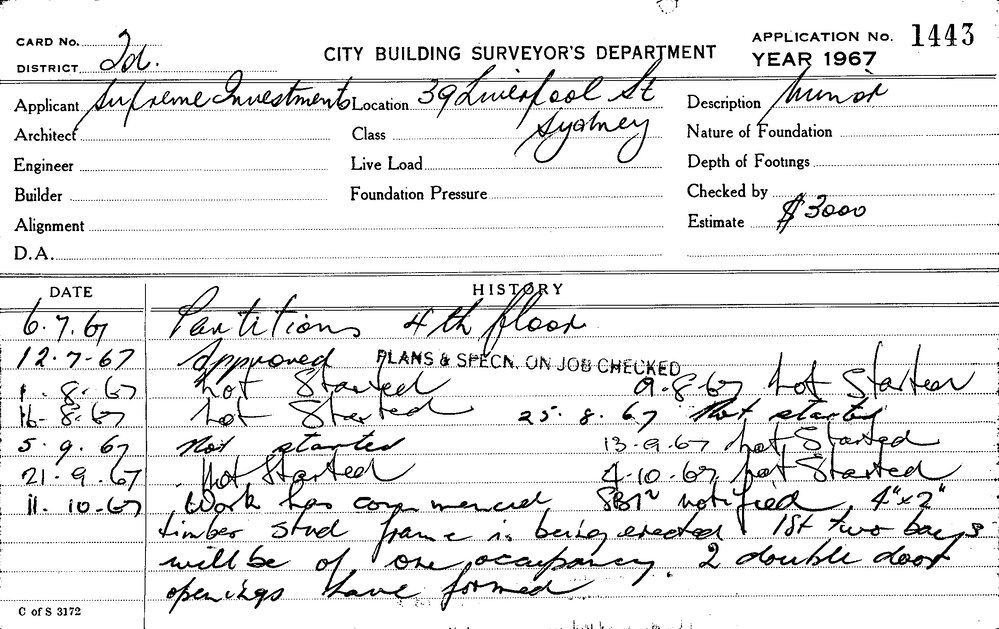 CARD No.
DISTRICT 2d.
CITY BUILDING SURVEYOR'S DEPARTMENT
APPLICATION No. 1443
YEAR 1967
Applicant Supreme Investments Location 39 Liverpool St Description Minor
Architect Class Sydney Nature of Foundation
Engineer Live Load Depth of Footings
Builder Foundation Pressure Checked by
Alignment Estimate $3000
D.A.
DATE HISTORY
6.7.67 Partitions 4th floor
12.7-67 Approved PLANS & SPECN. ON JOB CHECKED
1.8.67 not Started 9-8-67 not Started
16-8-67 not Started 25.8.67 Not started
5.9.67 Not started 13-9-67 not Started
21.9.67 Not Started 4-10-67 not Started
11.10-67 Work has commenced notified 4"x2"
timber stud frame is being erected 1st two bays
will be of one occupancy. 2 double door
openings have formed
C of S 3172